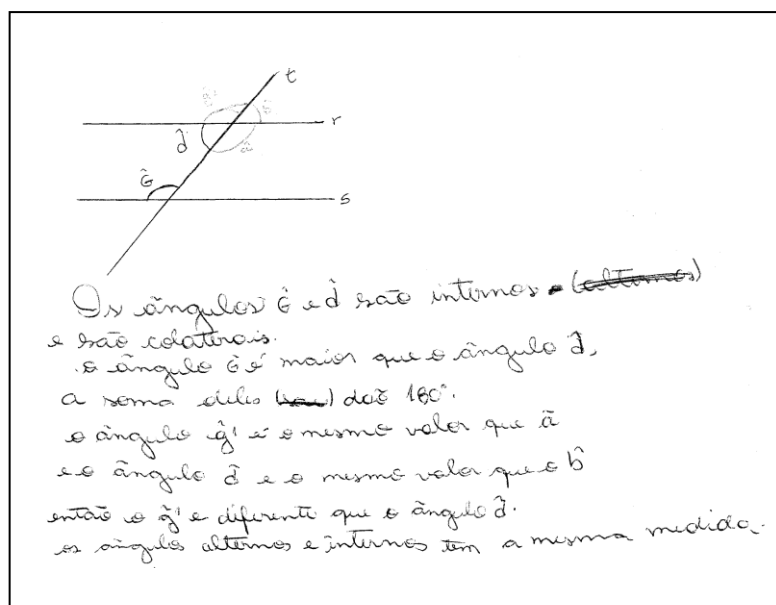 t
ĝ' b̂
r
d̂ â
Ĝ
s
Os ângulos Ĝ e d̂ são internos (alternos)
e são colaterais.
o ângulo Ĝ é maior que o ângulo d̂,
a soma deles daõ 180°.
o ângulo ĝ' é o mesmo valor que â
e o ângulo d̂ e o mesmo valor que o b̂
então o ĝ' e diferente que o ângulo d̂.
os ângulos alternos e internos tem a mesma medida.